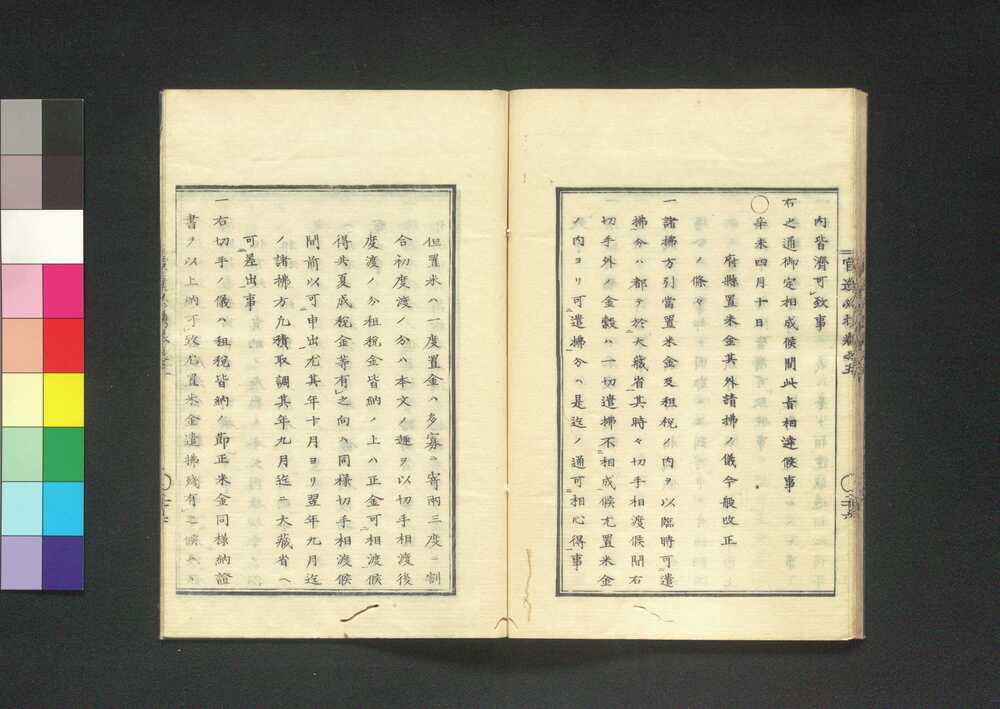 内皆濟可致事
右之通御定相成候間此旨相達候事
○辛未四月十日
府縣置米金其外諸拂ノ儀今般改正
ノ條々
一諸拂方引當置米金及租税ノ内ヲ以臨時可遣
拂分ハ都テ於大藏省其時々切手相渡候間右
切手外ノ金穀ハ一切遣拂不相成候尤置米金
ノ内ヨリ可遣拂分ハ是迄ノ通可相心得事
但置米ハ一度置金ハ多寡ニ寄兩三度ニ割
合初度渡ノ分ハ本文ノ趣ヲ以切手相渡後
度渡ノ分租税金皆納ノ上ハ正金可相渡候
得共夏成税金等有之向ハ同様切手相渡候
間前以可申出尤其年十月ヨリ翌年九月迄
ノ諸拂方凡積取調其年九月迄ニ大藏省ヘ
可差出事
一右切手ノ儀ハ租税皆納ノ節正米金同様納證
書ヲ以上納可致尤置米金遣拂殘有之候